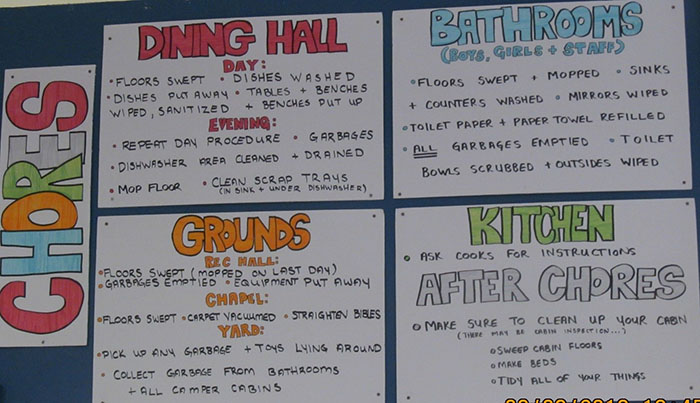 CHORES
DINING HALL
DAY:
• FLOORS SWEPT • DISHES WASHED
• DISHES PUT AWAY • TABLES + BENCHES
WIPED, SANITIZED + BENCHES PUT UP
EVENING:
• REPEAT DAY PROCEDURE • GARBAGES
• DISHWASHER AREA CLEANED + DRAINED
• MOP FLOOR • CLEAN SCRAP TRAYS
(IN SINK + UNDER DISHWASHER)
BATHROOMS
(BOYS, GIRLS + STAFF)
• FLOORS SWEPT + MOPPED • SINKS
+ COUNTERS WASHED • MIRRORS WIPED
• TOILET PAPER + PAPER TOWEL REFILLED
• ALL GARBAGES EMPTIED • TOILET
BOWLS SCRUBBED + OUTSIDES WIPED
GROUNDS
REC HALL:
• FLOORS SWEPT (MOPPED ON LAST DAY)
• GARBAGES EMPTIED • EQUIPMENT PUT AWAY
CHAPEL:
• FLOORS SWEPT • CARPET VACUUMED • STRAIGHTEN BIBLES
YARD:
• PICK UP ANY GARBAGE + TOYS LYING AROUND
• COLLECT GARBAGE FROM BATHROOMS
+ ALL CAMPER CABINS
KITCHEN
• ASK COOKS FOR INSTRUCTIONS
AFTER CHORES
• MAKE SURE TO CLEAN UP YOUR CABIN
(THERE MAY BE CABIN INSPECTION...)
• SWEEP CABIN FLOORS
• MAKE BEDS
• TIDY ALL OF YOUR THINGS